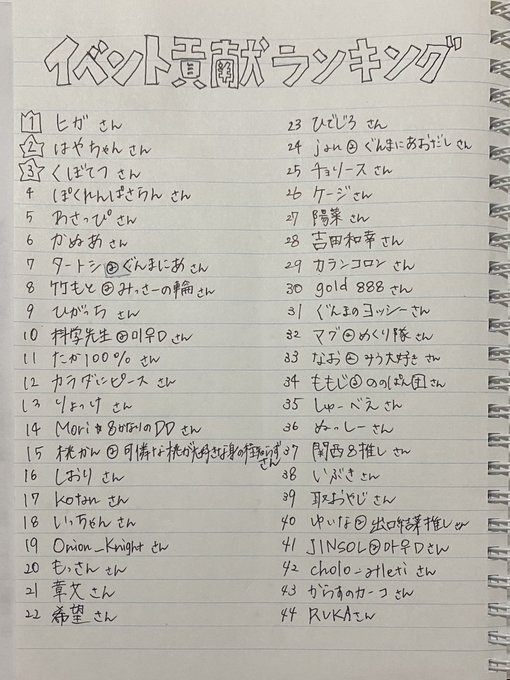 イベント貢献ランキング
1 ヒガ さん
2 はやちゃん さん
3 くぼてつ さん
4 ぽくれんぱさちん さん
5 わさっぴ さん
6 かぬあ さん
7 タートシ ぐんまにあ さん
8 竹もと みっさーの輪 さん
9 ひがっち さん
10 科学先生 미우D さん
11 たか100% さん
12 カラダにピース さん
13 りょっけ さん
14 Mori かなりのDD さん
15 桃かん 可憐な桃が大好きな身の程知らず さん
16 しおり さん
17 kotan さん
18 いっちゃん さん
19 Onion_Knight さん
20 もっさん さん
21 草 さん
22 希望 さん
23 ひでじろ さん
24 jan ぐんまにあおだし さん
25 チョリース さん
26 ケージ さん
27 陽菜 さん
28 吉田和幸 さん
29 カランコロン さん
30 gold 888 さん
31 ぐんまのヨッシー さん
32 マブ めくり隊 さん
33 なお みう大好き さん
34 ももじ ののぱん団 さん
35 しゅーべえ さん
36 ぬっしー さん
37 関西8推し さん
38 いぶき さん
39 耳又おやじ さん
40 ゆいな 出口結菜推し さん
41 JINSOL 미우D さん
42 cholo_atleti さん
43 がらすのカーコ さん
44 RUKA さん